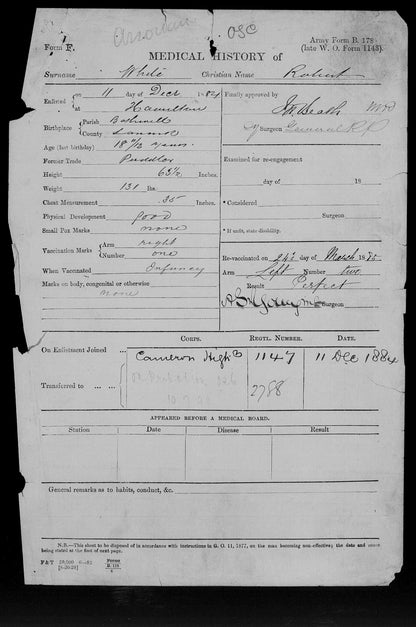 OSC
Form F.
Army Form B. 178
(late W. O. Form 1143).
MEDICAL HISTORY of
Surname White Christian Name Robert
Enlisted 11 day of Decr 1884
at Hamilton
Birthplace Parish Bothwell
County Lanark
Age (last birthday) years.
Former Trade Puddler
Height 63½ Inches.
Weight 131 lbs.
Chest Measurement 35 Inches.
Physical Development good
Small Pox Marks none
Vaccination Marks Arm right
Number one
When Vaccinated Infancy
Marks on body, congenital or otherwise
none
Finally approved by
Surgeon General
Examined for re-engagement
day of 18
* Considered
Surgeon
* If unfit, state disability.
Re-vaccinated on day of March 1885
Arm Left Number two
Result Perfect
Surgeon
CORPS. REGTL. NUMBER. DATE.
On Enlistment Joined ... Cameron High 1147 11 Dec 1884
Transferred to ... 2788
APPEARED BEFORE A MEDICAL BOARD.
Station Date Disease Result
General remarks as to habits, conduct, &c.
N.B.—This sheet to be disposed of in accordance with instructions in G. O. 11, 1877, on the man becoming non-effective; the date and cause
being stated at the foot of next page.
F&T
Forms
B. 178